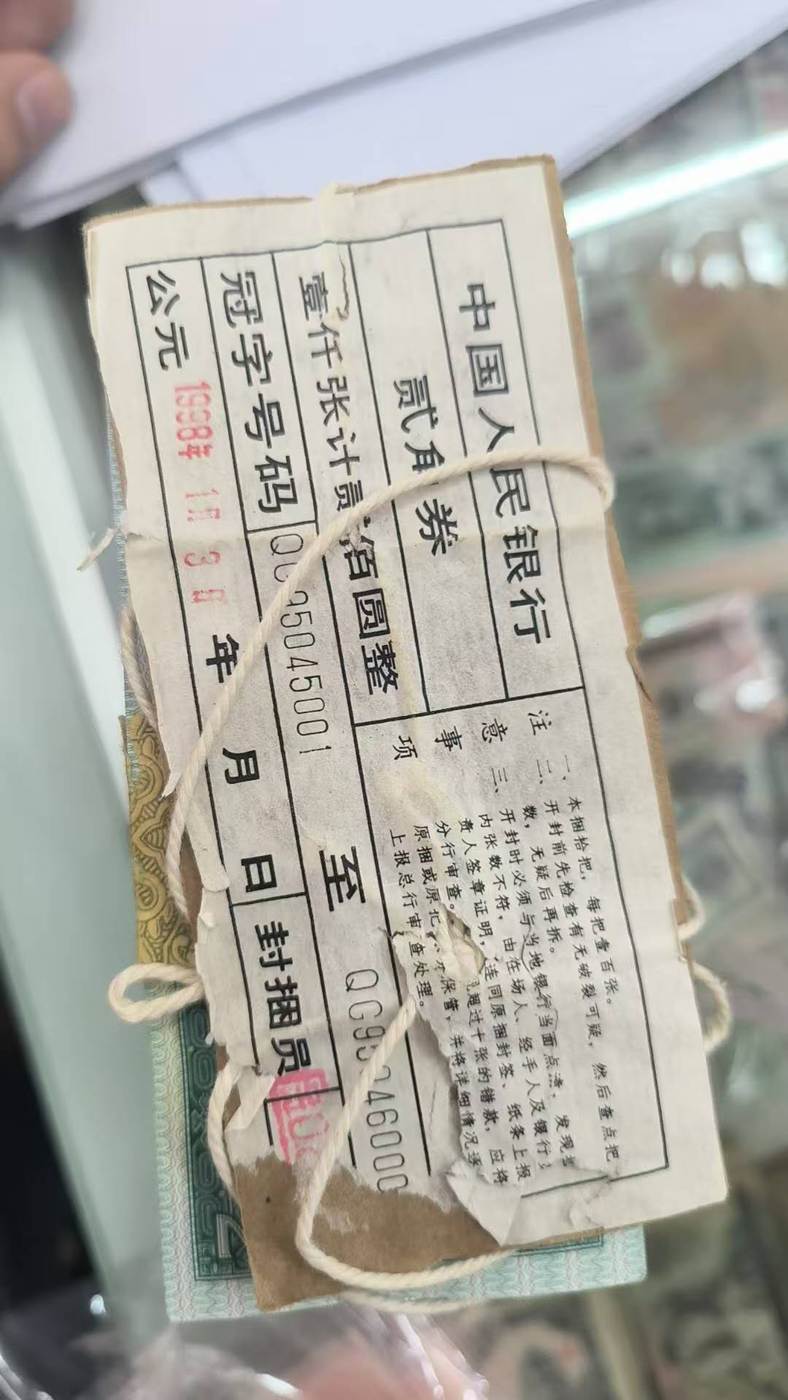 中国人民银行
贰角券
壹仟张计贰佰圆整
注意事项
一、本捆拾把，每把壹百张。
二、开封前先检查有无破裂可疑，然后查点把
数，无疑后再拆。
三、开封时必须与当地银行当面点清，发现
内张数不符，由在场人、经手人及银行
责人签章证明，连同原捆封签、纸条上报
分行审查。超过十张的错款，应将
原捆或原把保管，并将详细情况逐
上报总行审查处理。
冠字号码 QG95045001 至 QG95046000
公元 1998年 1月 3日 年 月 日 封捆员